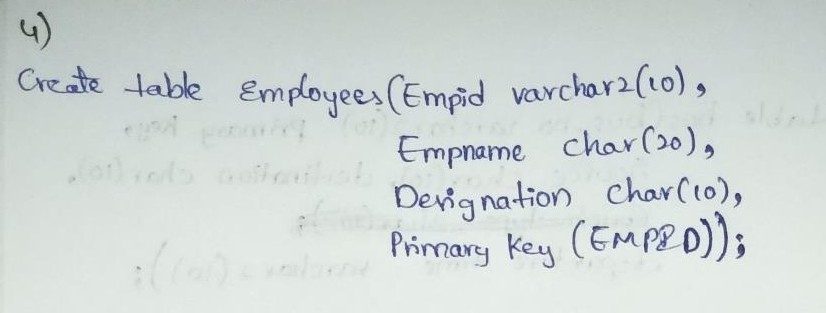 4)
Create table Employees(Empid varchar2(10),
Empname char(20),
Designation char(10),
Primary key (EMPID));